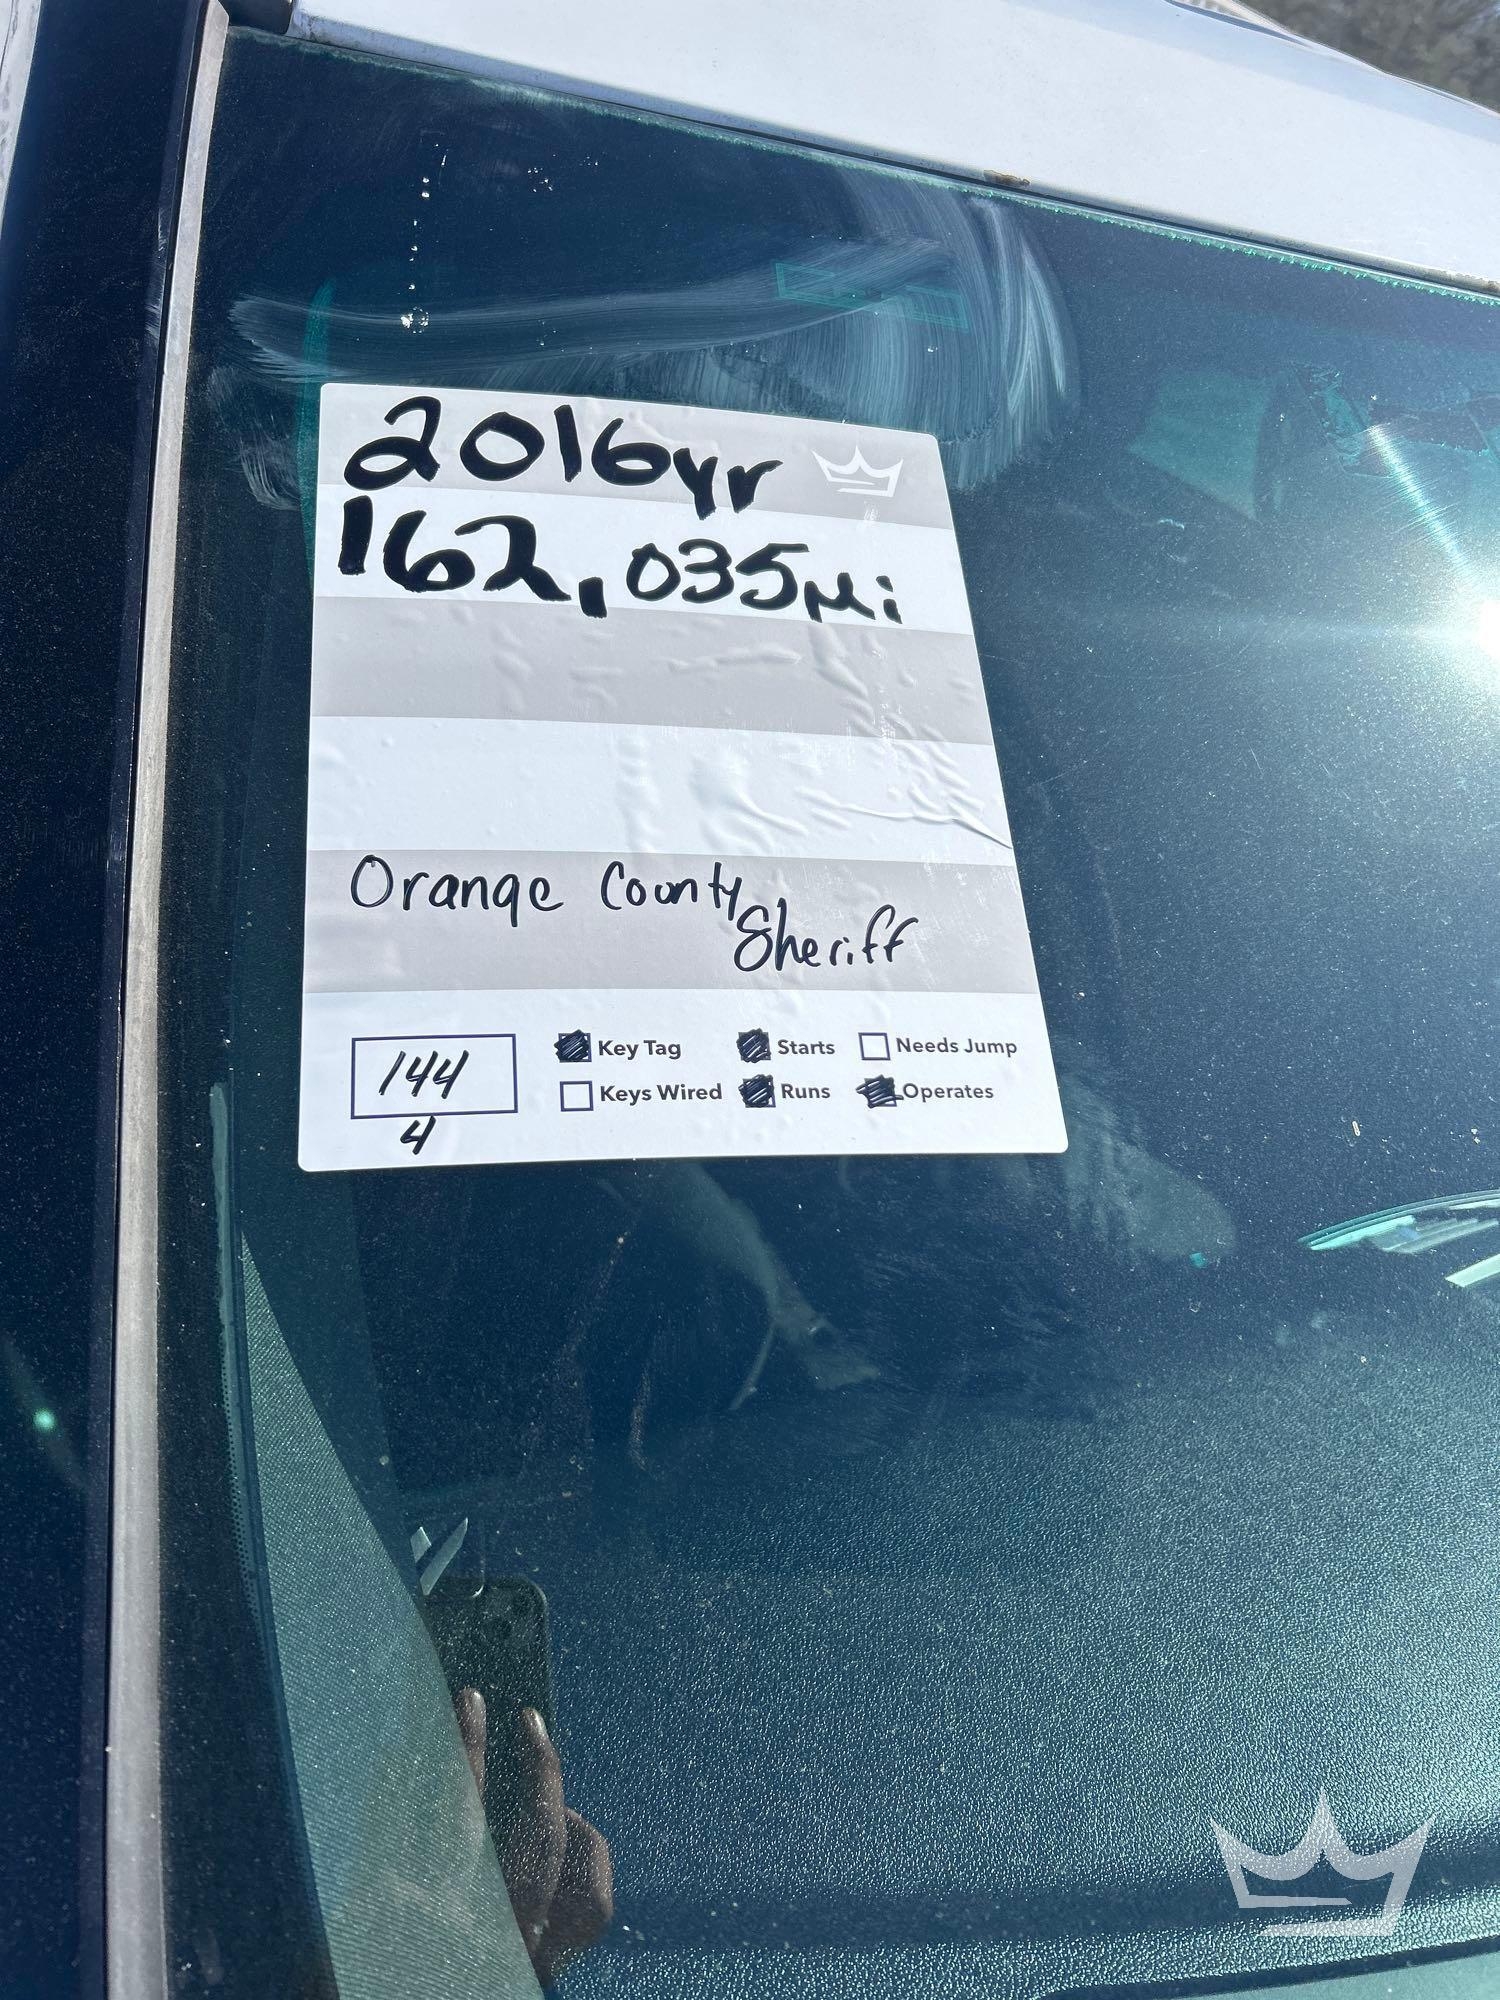 2016yr
162,035Mi
Orange County
Sheriff
144
4
Key Tag
Starts
Needs Jump
Keys Wired
Runs
Operates